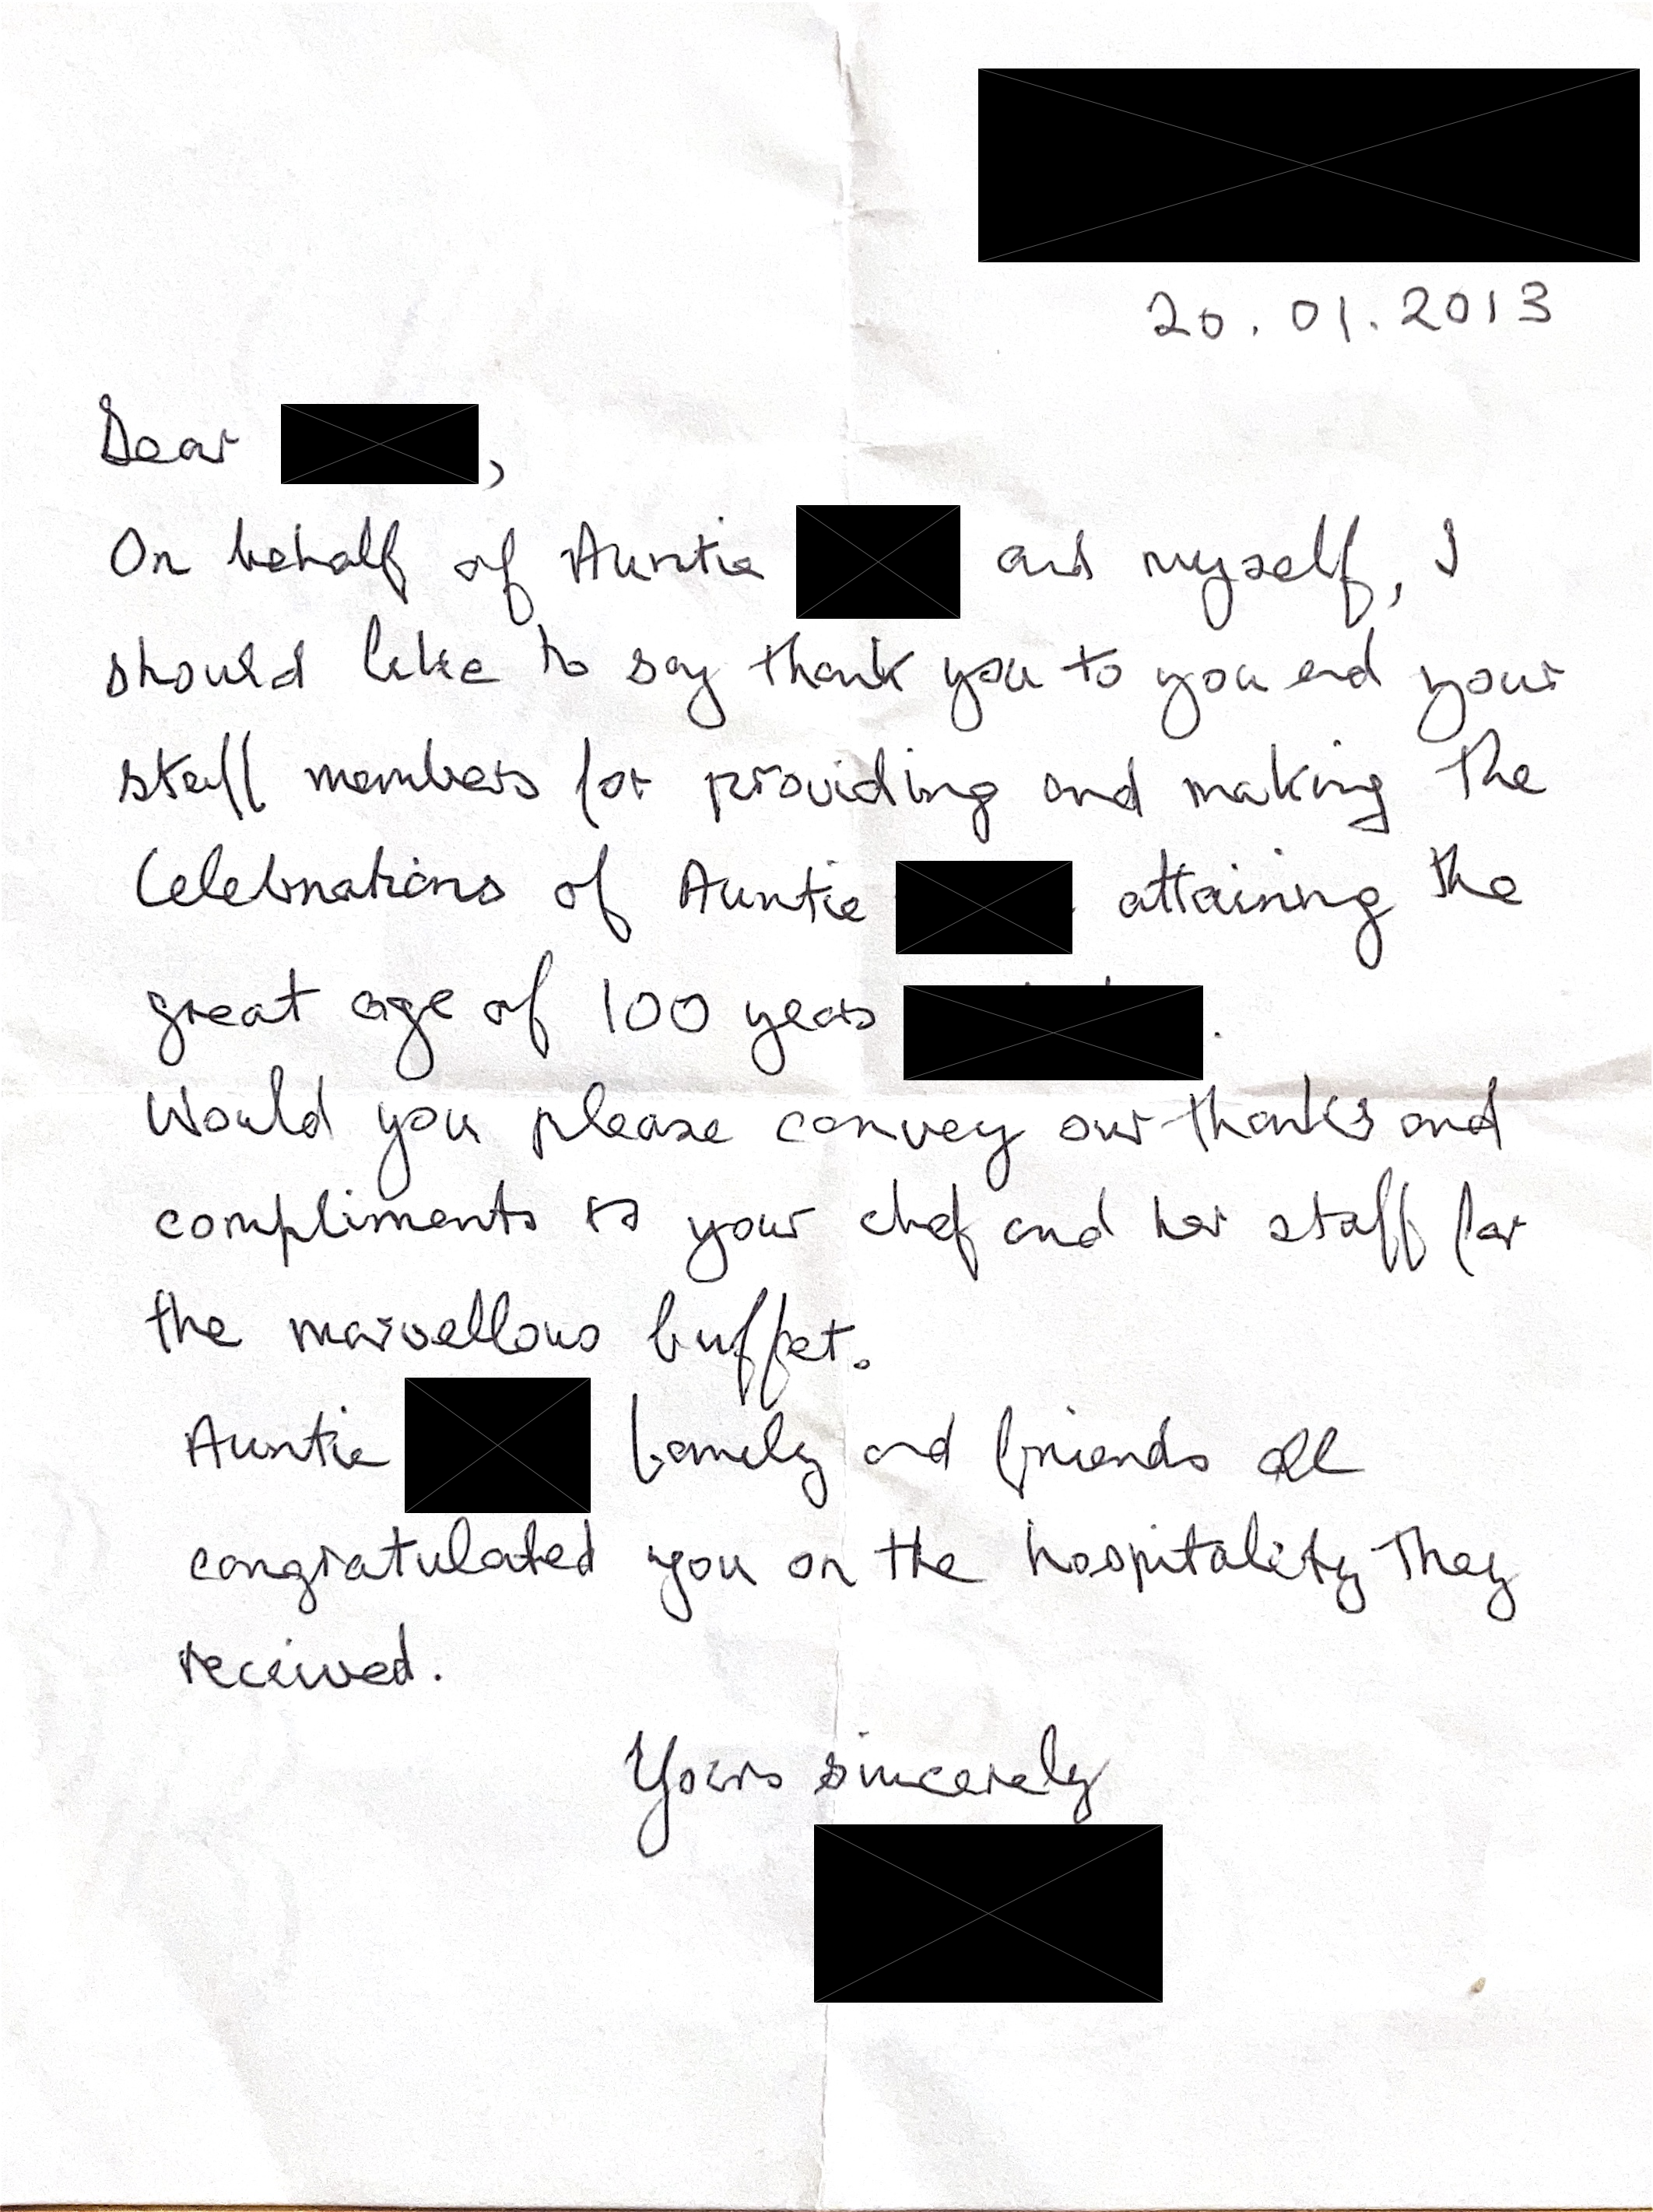 20.01.2013
Dear ,
On behalf of Auntie and myself, I
should like to say thank you to you and your
staff members for providing and making the
Celebrations of Auntie attaining the
great age of 100 years .
Would you please convey our thanks and
compliments to your chef and her staff for
the marvellous buffet.
Auntie family and friends all
congratulated you on the hospitality they
received.
Yours sincerely